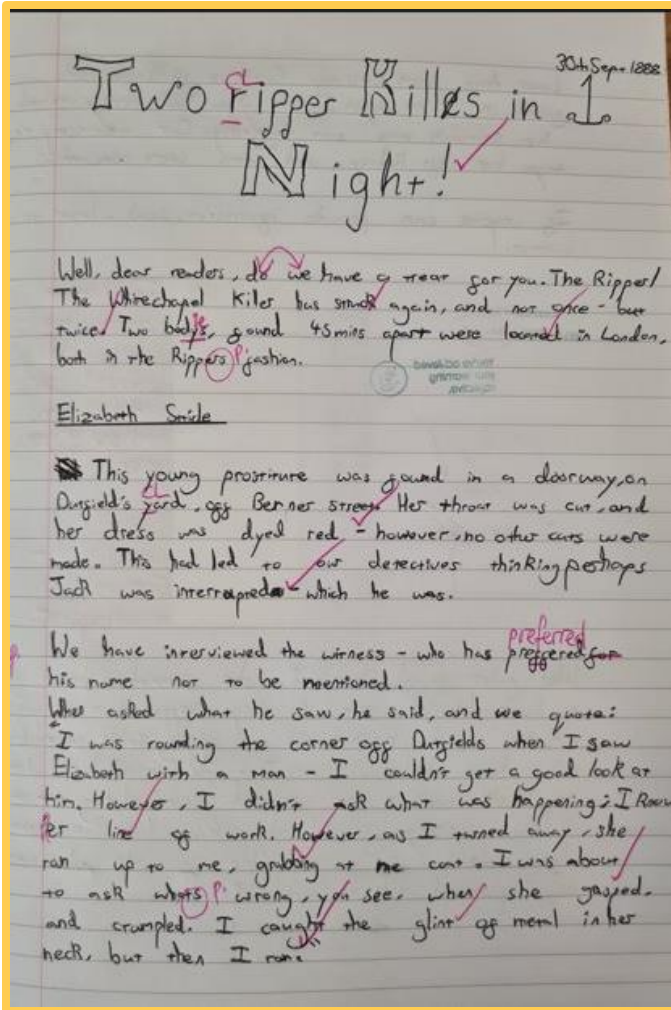 30th Sept 1888
Two ripper Killes in 1
Night!
Well, dear readers, do we have a treat for you. The Ripper/
The Whitechapel Killer has struck again, and not once - but
twice. Two bodys, found 45 mins apart were located in London,
both in the Rippers fashion.
Elizabeth Stride
This young prostitute was found in a doorway, on
Dutfield's yard, off Berner street. Her throat was cut, and
her dress was dyed red - however, no other cuts were
made. This had led to our detectives thinking perhaps
Jack was interrupted - which he was.
preferred
We have interviewed the witness - who has preffered for
his name not to be mentioned.
When asked what he saw, he said, and we quote:
"I was rounding the corner off Dutfields when I saw
Elizabeth with a man - I couldn't get a good look at
him. However, I didn't ask what was happening; I knew
her line of work. However, as I turned away, she
ran up to me, grabbing at me coat. I was about
to ask whats wrong, you see, when she gasped,
and crumpled. I caught the glint of metal in her
neck, but then I ran."